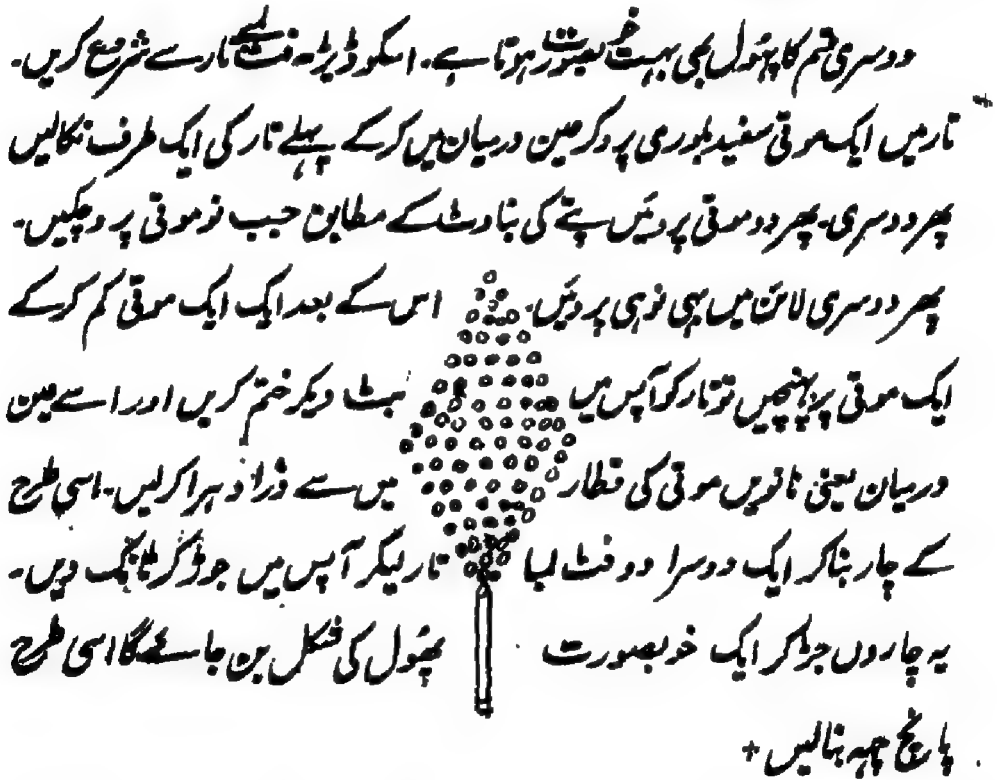 دوسری قسم کا پھول بھی بہت خوبصورت ہوتا ہے۔ اسکو ڈیڑھ فٹ لمبے تار سے شروع کریں۔
تار میں ایک موتی سفید بلوری پرو کر عین درمیان میں کر کے پہلے تار کی ایک طرف نکالیں
پھر دوسری۔ پھر دو موتی پروئیں پتے کی بناوٹ کے مطابق جب نو موتی پرو چکیں۔
پھر دوسری لائن میں بھی نو ہی پروئیں۔ اس کے بعد ایک ایک موتی کم کر کے
ایک موتی پر پہنچیں تو تار کو آپس میں بٹ دیکر ختم کریں اور اسے عین
درمیان یعنی نانویں موتی کی قطار میں سے ذرا دہرا کر لیں۔ اسی طرح
کے چار بنا کر ایک دوسرا دو فٹ لمبا تار لیکر آپس میں جوڑ کر ٹانک دیں۔
یہ چاروں جڑ کر ایک خوبصورت پھول کی شکل بن جائے گا اسی طرح
پانچ چھہ بنالیں +